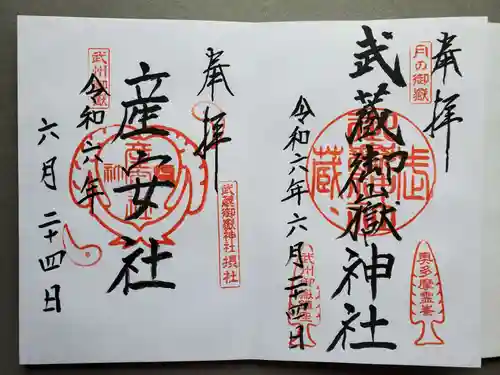 奉拝
月の御嶽
武蔵御嶽神社
奥多摩霊峯
令和六年六月二十四日
奉拝
武蔵御嶽神社摂社
産安社
武州御嶽
令和六年
六月二十四日